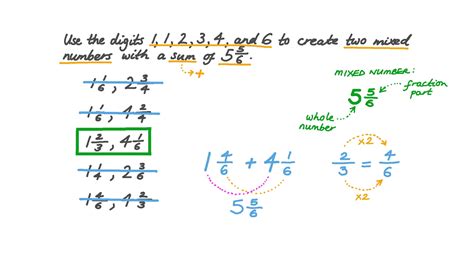 Use the digits 1, 1, 2, 3, 4, and 6 to create two mixed
numbers with a sum of 5 5/6.
+
1 1/6, 2 3/4
1 1/6, 4 2/4
1 2/3, 4 1/6
1 1/4, 2 3/6
1 4/6, 4 2/3
MIXED NUMBER:
5 5/6
fraction
part
whole
number
1 4/6 + 4 1/6
5 5/6
×2
2/3 = 4/6
×2